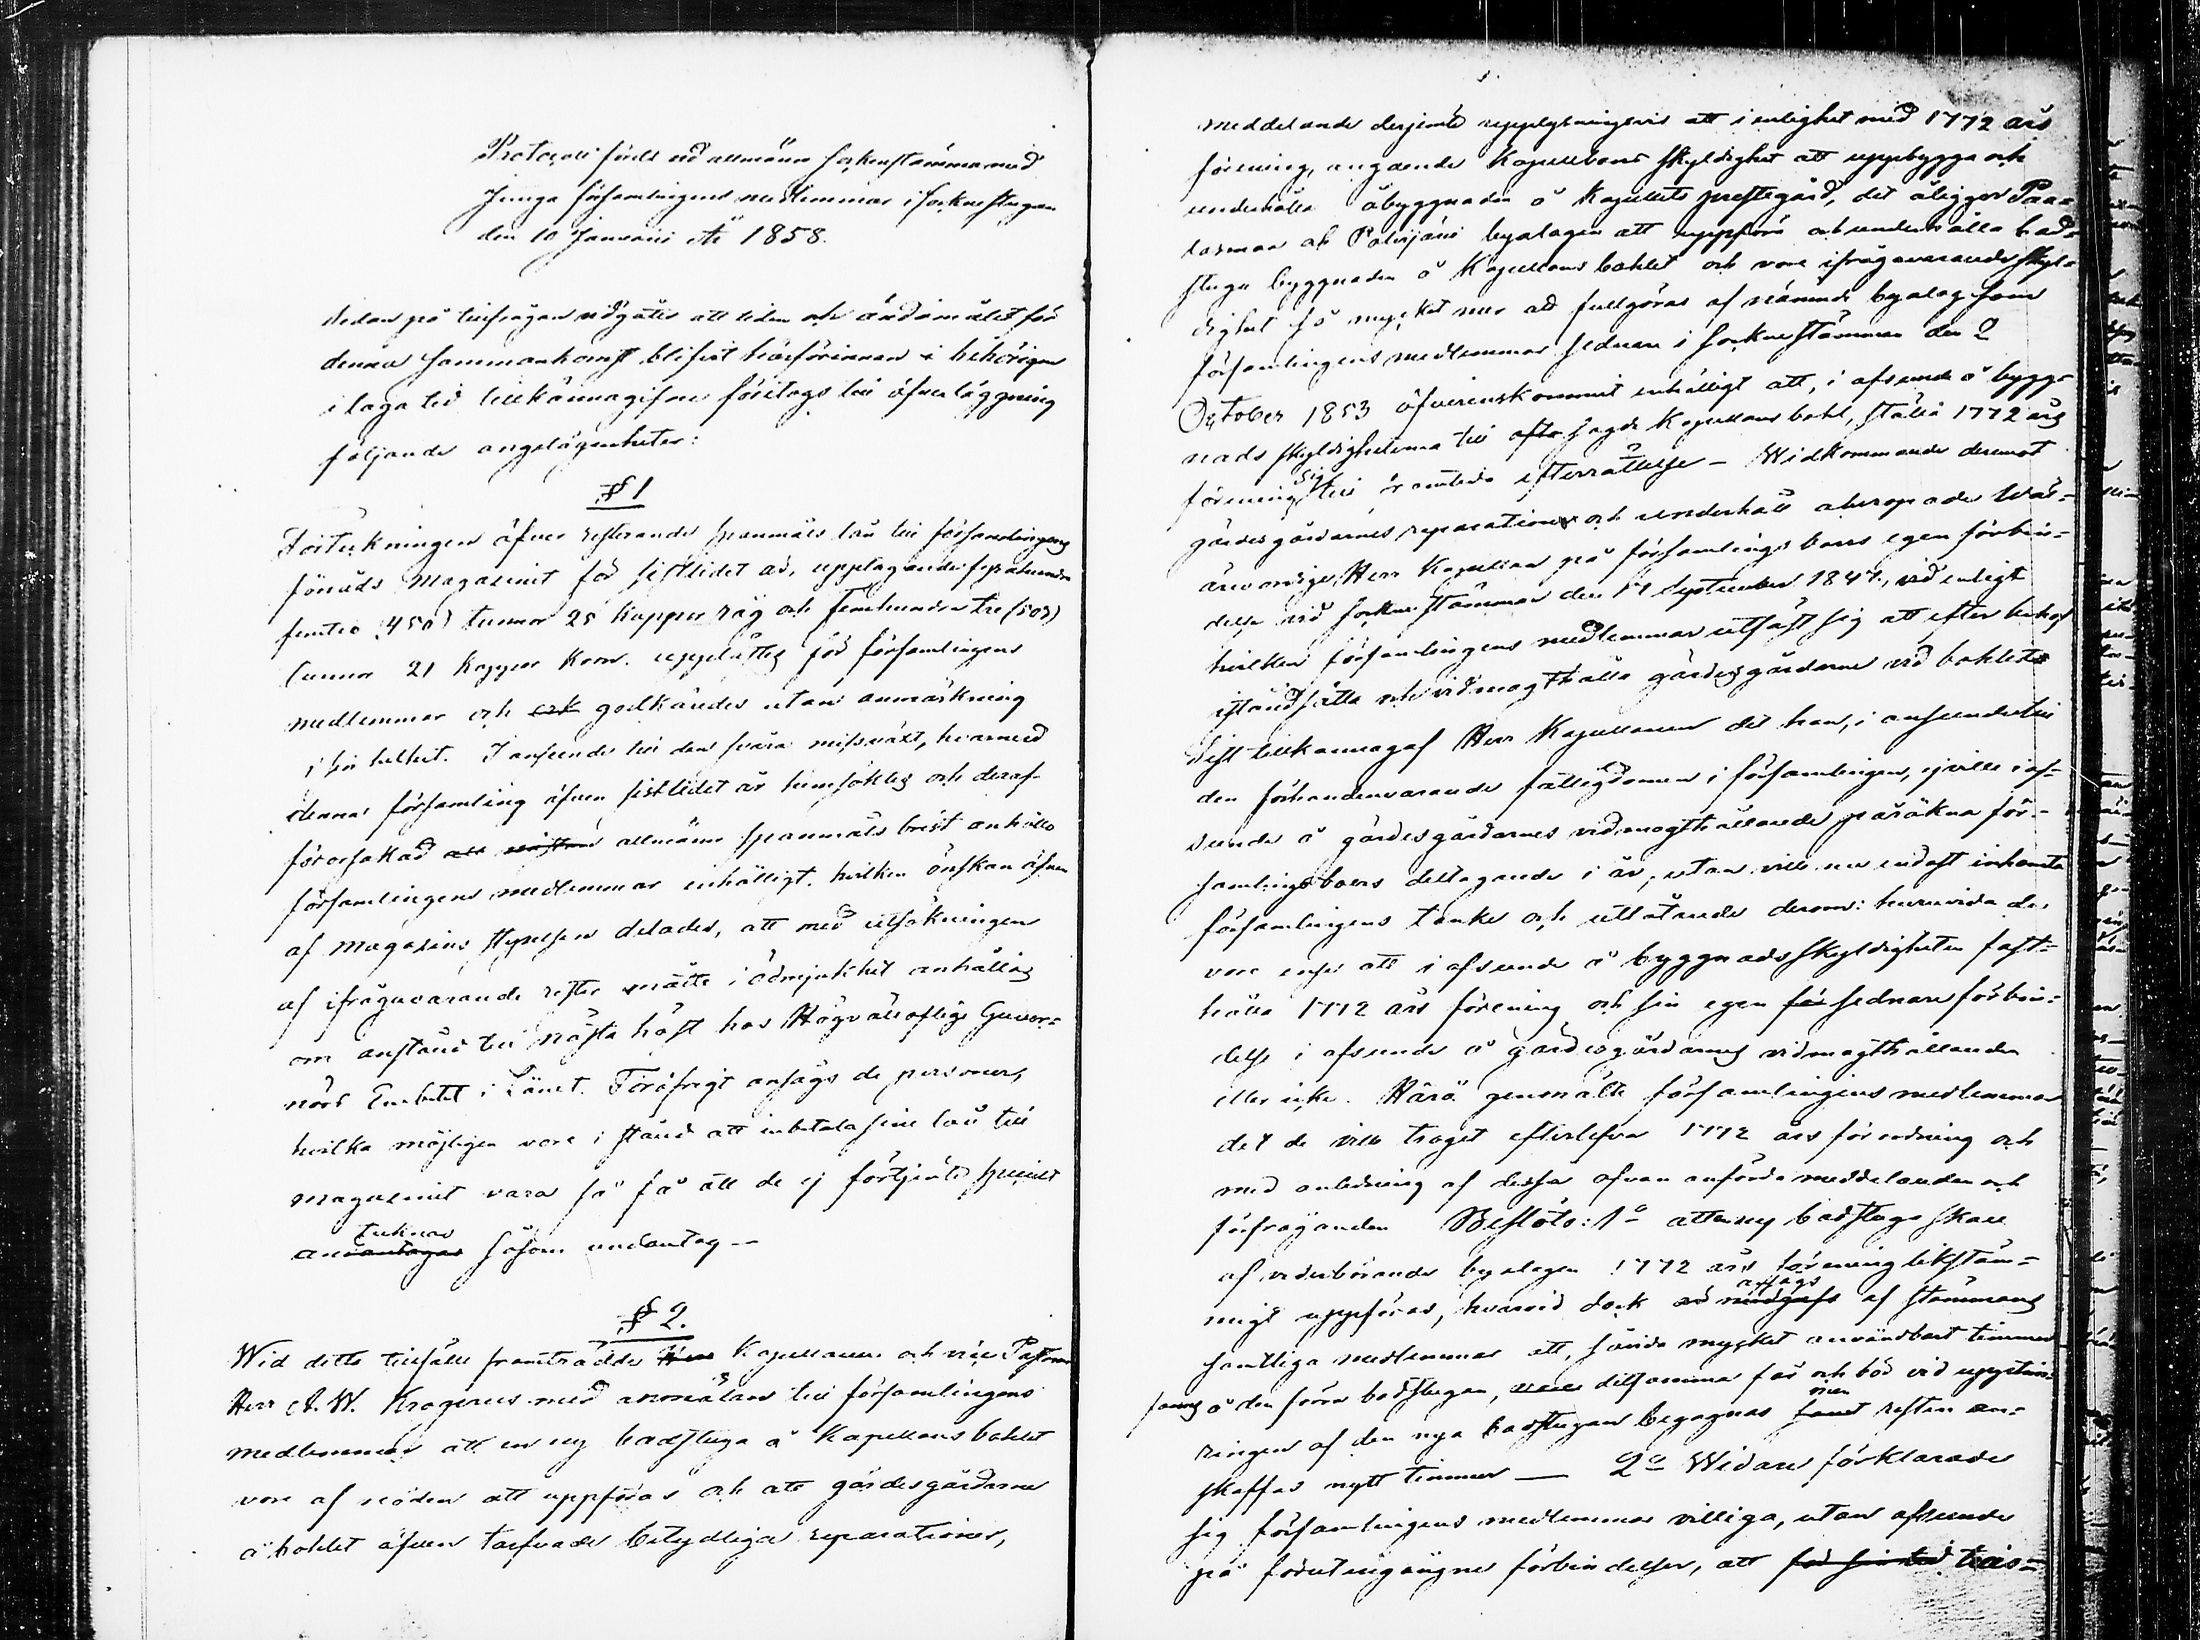 Protocoll fördt vid allmänna sockenstämman med
Jurga församlingens medlemmar i sockenstugan
den 10 Januarii År 1858.
Sedan på tillfrågan vidgåtts att tiden och ändamålet för
denna sammankomst blifvit härförinnan i behörigen
i laga tid tillkännagifne företogs till öfverläggning
följande angelägenheter:
§ 1
Förteckningen öfver resterande spanmåls lån till församlingens
förråds magasinet för sistlidet år, upptagande fyrahundra
femtio (450) tunnor 25 kappar råg och femhundra tre (503)
tunnor 21 kappar korn. upplästes för församlingens
medlemmar och och godkändes utan anmärkning
i sin helhet. I anseende till den svåra missväxt, hvarmed
denna församling äfven sistlidet år hemsöktes och deraf
förorsakad all nästan allmänn spanmåls brist anhöllo
församlingens medlemmar enhälligt, hvilken önskan äfven
af Magasins Styrelsen delades, att med utsökningen
af ifrågavarande rester måtte i ödmjukhet anhållas
om anstånd till nästa höst hos Högvällofliga Guver=
nörs Embetet i Länet. Föröfrigt ansågs de personer,
hvilka möjligen vore i stånd att inbetala sine lån till
magasinet vara så få att de ej förtjente speciellt
antecknas
såsom undantag —
§ 2.
Wid detta tillfälle framträdde Herr Kapellanen och vice Pastorn
Herr A. W. Krogerus med anmälan till församlingens
medlemmar att en ny badstuga å Kapellans bohlet
vore af nöden att uppföras och att gärdesgårdarne
å bohlet äfven tarfvade betydliga reparationer,
meddelande derjemte upplysningsvis att i enlighet med 1772 års
förening, angående Kapellboers skyldighet att uppbygga och
underhålla åbyggnaden å Kapellets prestegård, det åligger Paa=
lasmaa och Palvijärvi byalagen att uppföra och underhålla bad=
stuga byggnaden å Kapellans bohlet och vore ifrågavarande skyl=
dighet så mycket mer att fullgöras af nämnde byalag som
församlingens medlemmar sednare i sockenstämman den 2
October 1853 öfverenskommit enhälligt att, i afseende å bygg=
nads skyldigheterna till ofta sagde Kapellans bohl, ställa 1772 års
förening sig till framtida efterrättelse – Widkommande deremot
gärdesgårdarnes reparationer och underhåll åberopade Wäl=
ärevördige Herr Kapellan på församlingsboers egen förbin=
delse vid sockenstämman den 19 September 1847, vid enligt
hvilken församlingens medlemmar utfäst sig att efter behof
iståndsätta och vidmagthålla gärdesgårdarne vid bohlet
Sist tillkännagaf Herr Kapellanen det han, i anseende till
den förhandenvarande fattigdomen i församlingen, ej ville i af=
seende å gärdesgårdarnes vidmagthållande påräkna för=
samlingsboers deltagande i år, utan ville nu endast inhemta
församlingens tanke och utlåtande derom: huruvida de
vore ense att i afseende å byggnadsskyldigheten fast=
hålla 1772 års förening och sin egen för sednare förbin=
delse i afseende å gärdesgårdarnes vidmagthållande
eller icke. Härå genmälte församlingens medlemmar
det de ville troget efterlefva 1772 års förordning och
med anledning af dessa ofvan anförda meddelanden och
förfråganden Beslöto: 1o att en ny badstuga skall
af vederbörande byalagen 1772 års förening likstäm=
migt uppföras, hvarvid dock ansågs af stämmans
samtliga medlemmar att, såvida mycket användbart timmer
fanns å den förra badstugan, detsamma får och bör vid uppstim=
ringen af den nya badstugan begagnas men resten an=
skaffas nytt timmer — 2o Widare förklarade
sig församlingens medlemmar villiga, utan afseende
på förutingångne förbindelser, att för sin tid